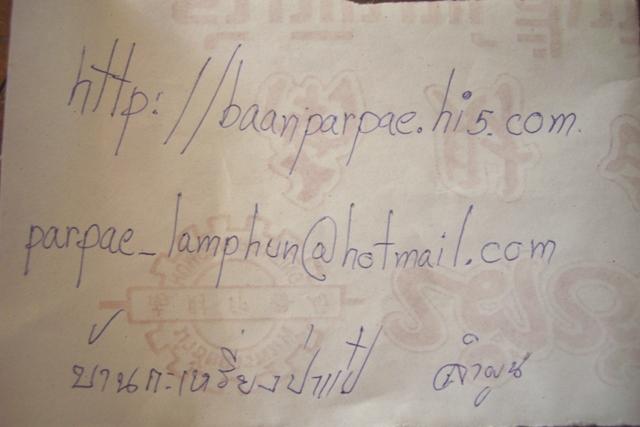 http://baanparpae.hi5.com
parpae_lamphun@hotmail.com
บ้านกะเหรี่ยงป่าแป๋ ลำพูน